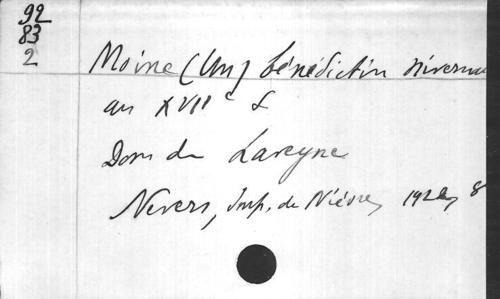 92
83
2
Moine (Un) bénédictin nivernais
au XVIIe s
Dom de Lareyne
Nevers, Imp. de Nièvre, 192 8